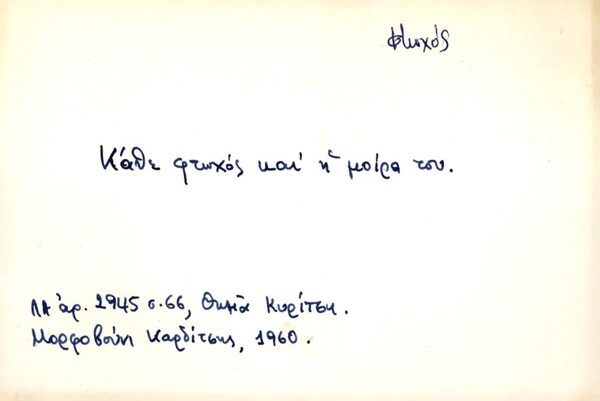 φτωχός
Κάθε φτωχός και' ἡ μοίρα του.
ΛΑ ἀρ. 2945 σ. 66, Θωμᾶ Κυρίτση.
Μορφοβούνι Καρδίτσης, 1960.